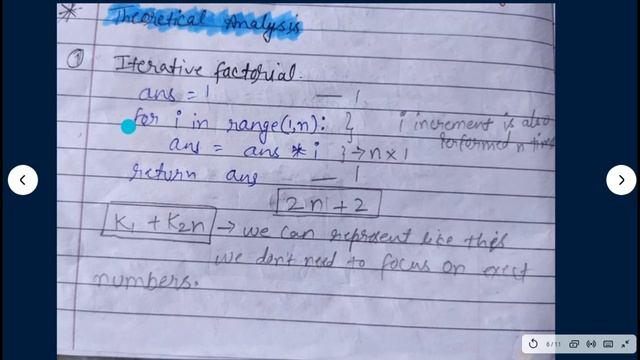 * Theoretical Analysis
① Iterative factorial.
ans = 1 — 1
for i in range(1,n): } i increment is also
ans = ans * i } → n x 1 performed n times
return ans — 1
2n + 2
K1 + K2n → we can represent like this
we don't need to focus on exact
numbers.
6 / 11